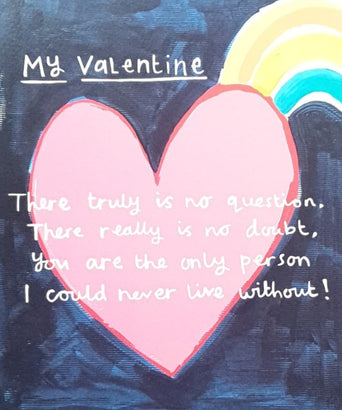 My Valentine
There truly is no question,
There really is no doubt,
You are the only person
I could never live without!